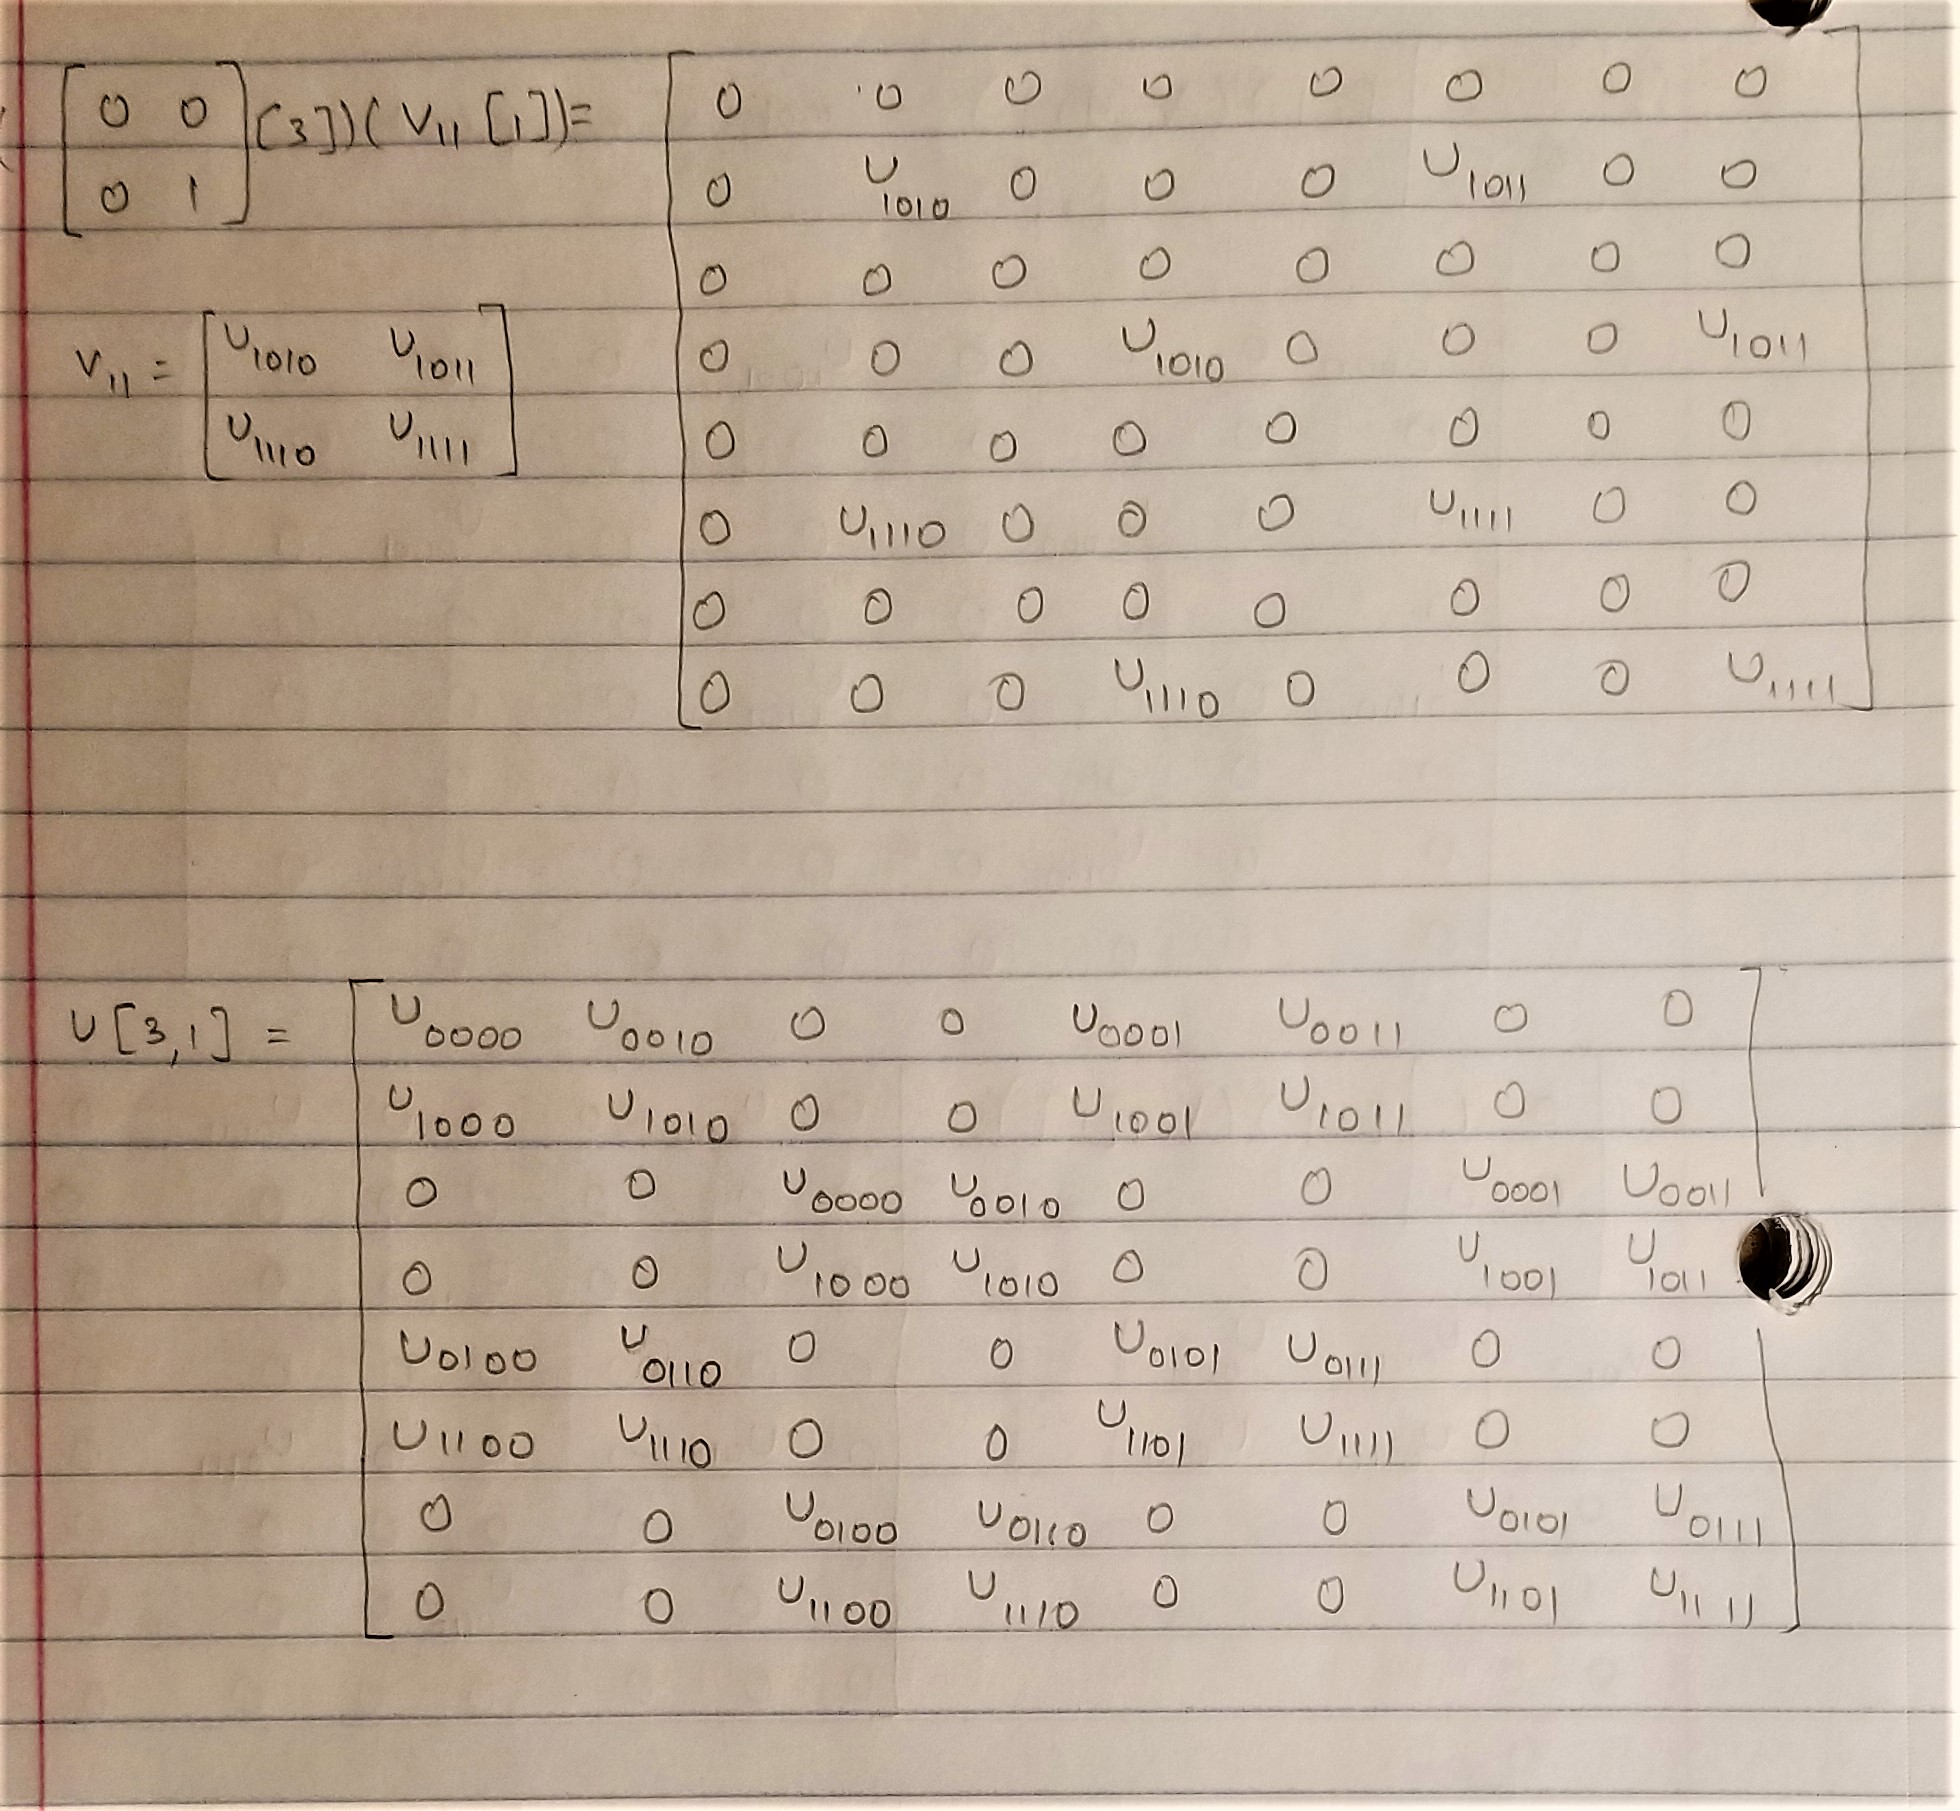 [0 0; 0 1] [3])(V₁₁[1])=
[0 0 0 0 0 0 0 0
0 U₁₀₁₀ 0 0 0 U₁₀₁₁ 0 0
0 0 0 0 0 0 0 0
0 0 0 U₁₀₁₀ 0 0 0 U₁₀₁₁
0 0 0 0 0 0 0 0
0 U₁₁₁₀ 0 0 0 U₁₁₁₁ 0 0
0 0 0 0 0 0 0 0
0 0 0 U₁₁₁₀ 0 0 0 U₁₁₁₁]
V₁₁ = [U₁₀₁₀ U₁₀₁₁
U₁₁₁₀ U₁₁₁₁]
U[3,1] =
[U₀₀₀₀ U₀₀₁₀ 0 0 U₀₀₀₁ U₀₀₁₁ 0 0
U₁₀₀₀ U₁₀₁₀ 0 0 U₁₀₀₁ U₁₀₁₁ 0 0
0 0 U₀₀₀₀ U₀₀₁₀ 0 0 U₀₀₀₁ U₀₀₁₁
0 0 U₁₀₀₀ U₁₀₁₀ 0 0 U₁₀₀₁ U₁₀₁₁
U₀₁₀₀ U₀₁₁₀ 0 0 U₀₁₀₁ U₀₁₁₁ 0 0
U₁₁₀₀ U₁₁₁₀ 0 0 U₁₁₀₁ U₁₁₁₁ 0 0
0 0 U₀₁₀₀ U₀₁₁₀ 0 0 U₀₁₀₁ U₀₁₁₁
0 0 U₁₁₀₀ U₁₁₁₀ 0 0 U₁₁₀₁ U₁₁₁₁]